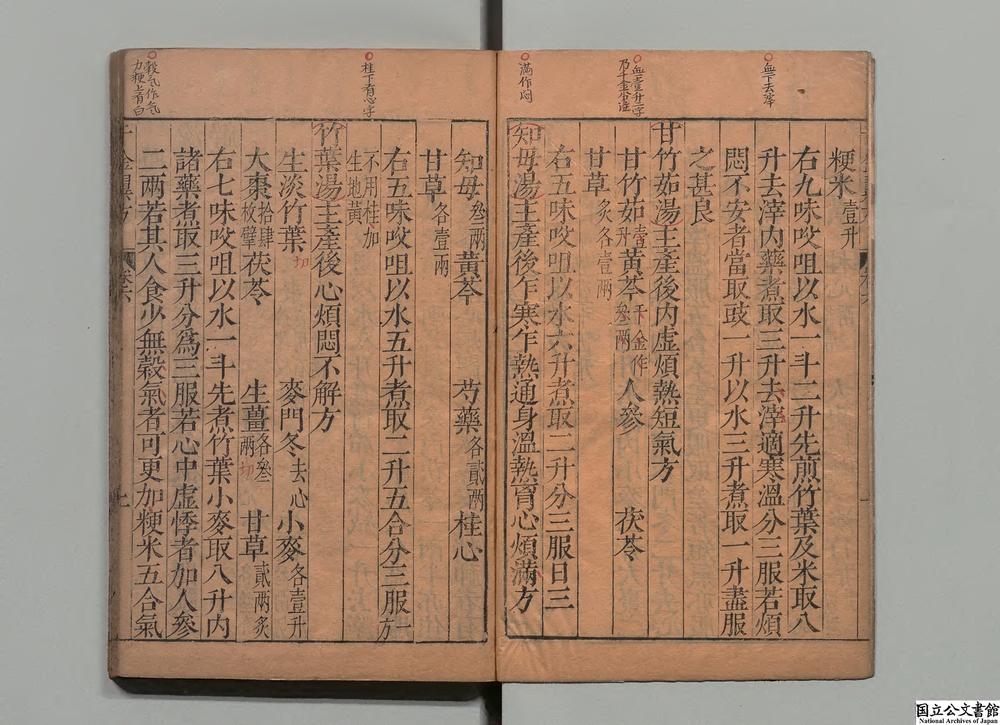 粳米壹升
右九味㕮咀以水一斗二升先煎竹葉及米取八
升去滓内藥煮取三升去滓適寒溫分三服若煩
悶不安者當取豉一升以水三升煮取一升盡服
之甚良
甘竹茹湯主產後内虛煩熱短氣方
甘竹茹壹升黃芩叁兩千金作人參 茯苓
甘草炙各壹兩
右五味㕮咀以水六升煮取二升分三服日三
知母湯主產後乍寒乍熱通身溫熱胷心煩滿方
血下去滓
血壹升字
乃千金小注
滿作悶
知母叁兩黃芩 芍藥各貳兩桂心
甘草各壹兩
右五味㕮咀以水五升煮取二升五合分三服一方
不用桂加
生地黃
竹葉湯主產後心煩悶不解方
生淡竹葉切 麥門冬去心小麥各壹升
大棗拾肆枚擘茯苓 生薑各叁兩切 甘草貳兩炙
右七味㕮咀以水一斗先煮竹葉小麥取八升内
諸藥煮取三升分爲三服若心中虛悸者加人參
二兩若其人食少無穀氣者可更加粳米五合氣
桂下有心字
穀氣作氣
力粳上有白
千金翼方 卷六 七
国立公文書館
National Archives of Japan